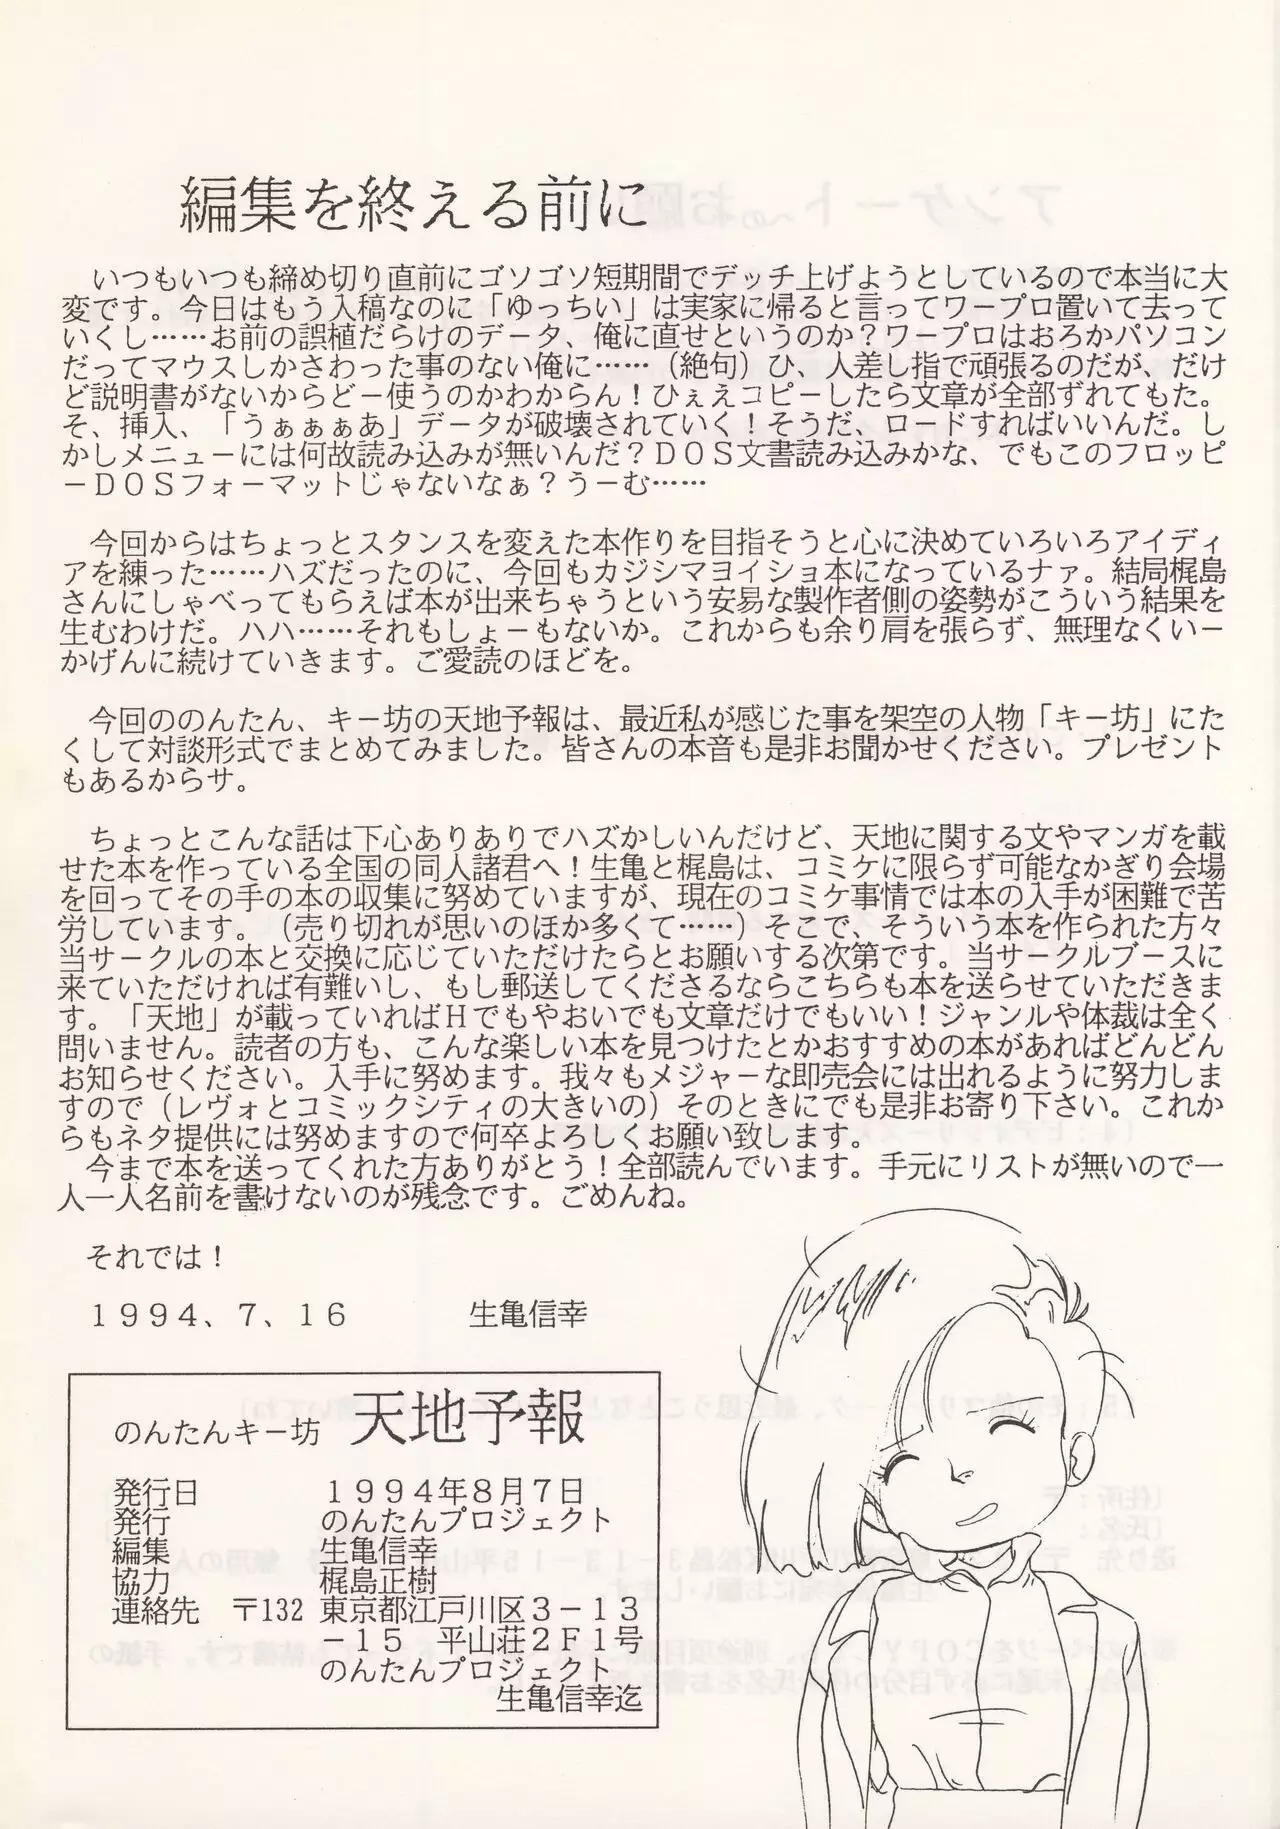 編集を終える前に
いつもいつも締め切り直前にゴソゴソ短期間でデッチ上げようとしているので本当に大
変です。今日はもう入稿なのに「ゆっちい」は実家に帰ると言ってワープロ置いて去って
いくし……お前の誤植だらけのデータ、俺に直せというのか？ワープロはおろかパソコン
だってマウスしかさわった事のない俺に……（絶句）ひ、人差し指で頑張るのだが、だけ
ど説明書がないからどー使うのかわからん！ひぇえコピーしたら文章が全部ずれてもた。
そ、挿入、「うぁぁぁあ」データが破壊されていく！そうだ、ロードすればいいんだ。し
かしメニューには何故読み込みが無いんだ？ＤＯＳ文書読み込みかな、でもこのフロッピ
ーＤＯＳフォーマットじゃないなぁ？うーむ……
今回からはちょっとスタンスを変えた本作りを目指そうと心に決めていろいろアイディ
アを練った……ハズだったのに、今回もカジシマヨイショ本になっているナァ。結局梶島
さんにしゃべってもらえば本が出来ちゃうという安易な製作者側の姿勢がこういう結果を
生むわけだ。ハハ……それもしょーもないか。これからも余り肩を張らず、無理なくいー
かげんに続けていきます。ご愛読のほどを。
今回ののんたん、キー坊の天地予報は、最近私が感じた事を架空の人物「キー坊」にた
くして対談形式でまとめてみました。皆さんの本音も是非お聞かせください。プレゼント
もあるからサ。
ちょっとこんな話は下心ありありでハズかしいんだけど、天地に関する文やマンガを載
せた本を作っている全国の同人諸君へ！生亀と梶島は、コミケに限らず可能なかぎり会場
を回ってその手の本の収集に努めていますが、現在のコミケ事情では本の入手が困難で苦
労しています。（売り切れが思いのほか多くて……）そこで、そういう本を作られた方々
当サークルの本と交換に応じていただけたらとお願いする次第です。当サークルブースに
来ていただければ有難いし、もし郵送してくださるならこちらも本を送らせていただきま
す。「天地」が載っていればＨでもやおいでも文章だけでもいい！ジャンルや体裁は全く
問いません。読者の方も、こんな楽しい本を見つけたとかおすすめの本があればどんどん
お知らせください。入手に努めます。我々もメジャーな即売会には出れるように努力しま
すので（レヴォとコミックシティの大きいの）そのときにでも是非お寄り下さい。これか
らもネタ提供には努めますので何卒よろしくお願い致します。
今まで本を送ってくれた方ありがとう！全部読んでいます。手元にリストが無いので一
人一人名前を書けないのが残念です。ごめんね。
それでは！
１９９４、７、１６　生亀信幸
のんたんキー坊　天地予報
発行日　１９９４年８月７日
発行　のんたんプロジェクト
編集　生亀信幸
協力　梶島正樹
連絡先　〒132　東京都江戸川区３－１３
－１５　平山荘２Ｆ１号
のんたんプロジェクト
生亀信幸迄